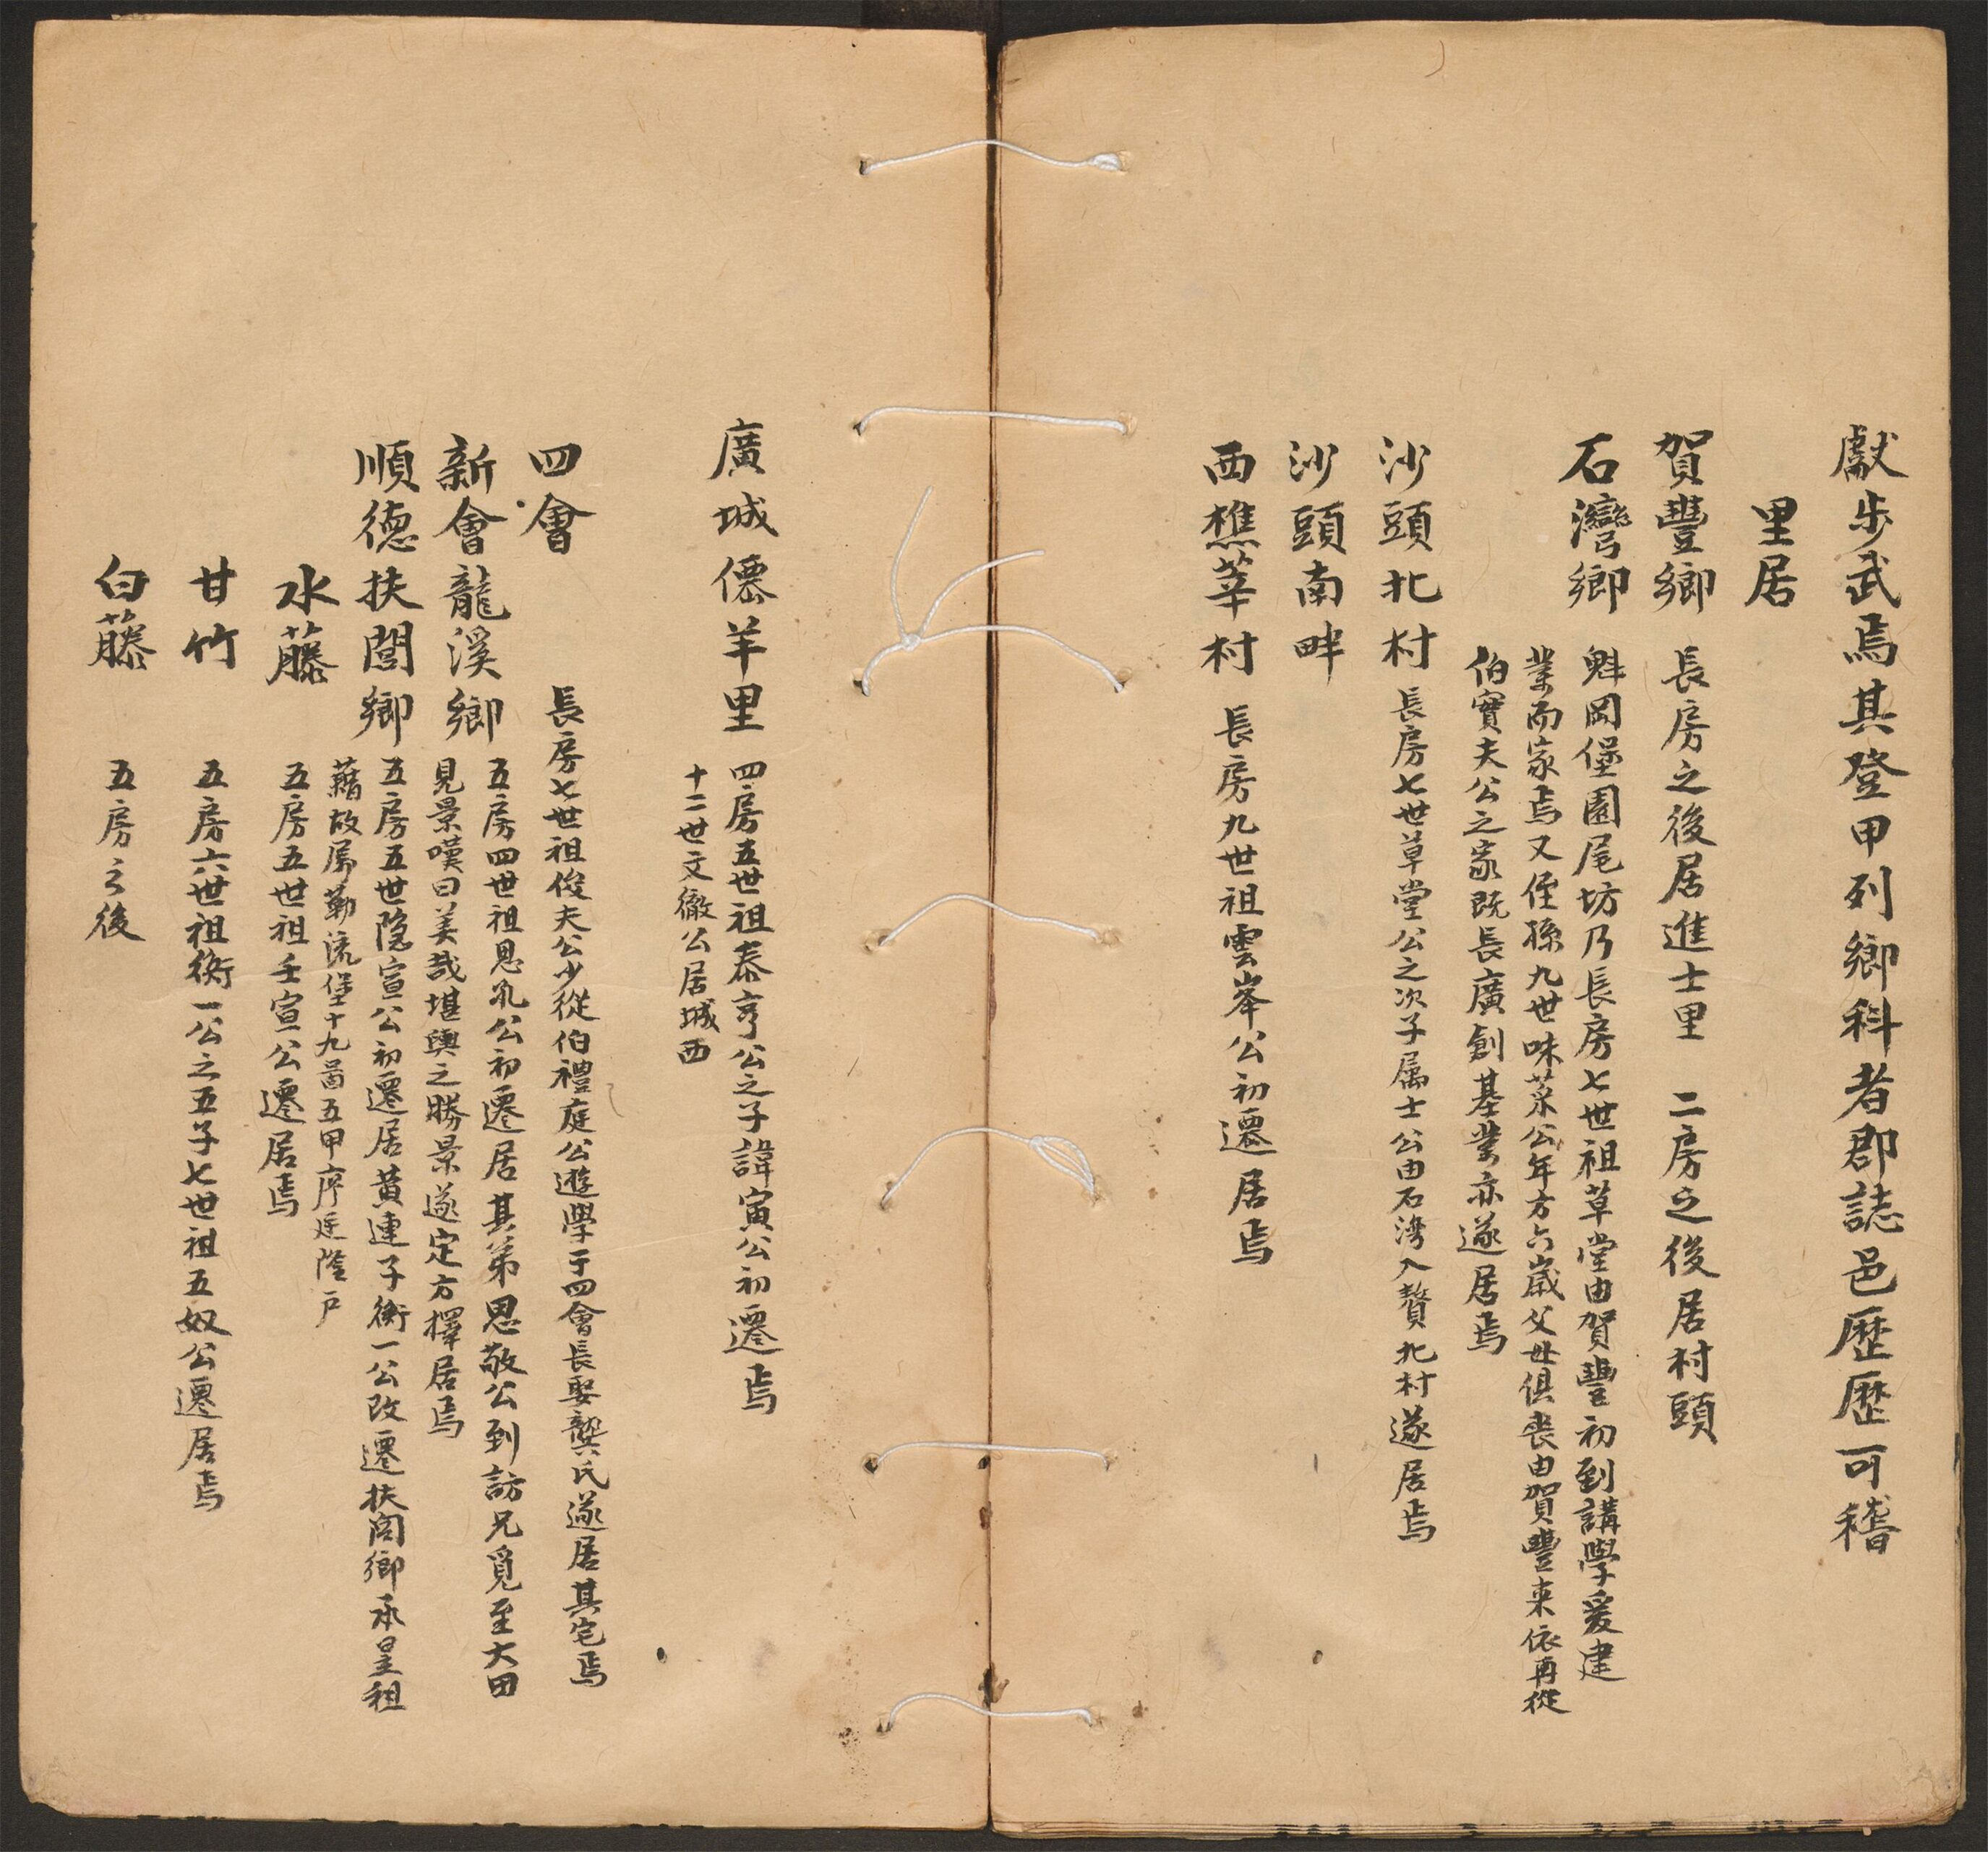 獻步武焉其登甲列鄉科者郡誌邑歷歷可稽
里居
賀豐鄉 長房之後居進士里 二房之後居村頭
石灣鄉 魁岡堡園尾坊乃長房七世祖草堂由賀豐初到講學爰建
業而家焉又侄孫九世味菜公年方六歲父母俱喪由賀豐来依再從
伯寳夫公之家既長廣創基業亦遂居焉
沙頭北村 長房七世草堂公之次子属士公由石湾入贅北村遂居焉
沙頭南畔
西樵莘村 長房九世祖雲峯公初遷居焉
廣城僊羊里 四房五世祖泰亨公之子諱寅公初遷焉
十二世文徽公居城西
四會 長房七世祖俊夫公少從伯禮庭公遊學于四會長娶龔氏遂居其宅焉
新會龍溪鄉 五房四世祖思孔公初遷居其弟思敬公到訪兄覓至大田
見景嘆曰美哉堪輿之勝景遂定方擇居焉
順德扶閭鄉 五房五世隐宣公初遷居黄連子衡一公改遷扶閭鄉承呈祖
藉故属勒流堡十九啚五甲序廷蔭户
水藤 五房五世祖壬宣公遷居焉
甘竹 五房六世祖衡一公之五子七世祖五奴公遷居焉
白藤 五房之後